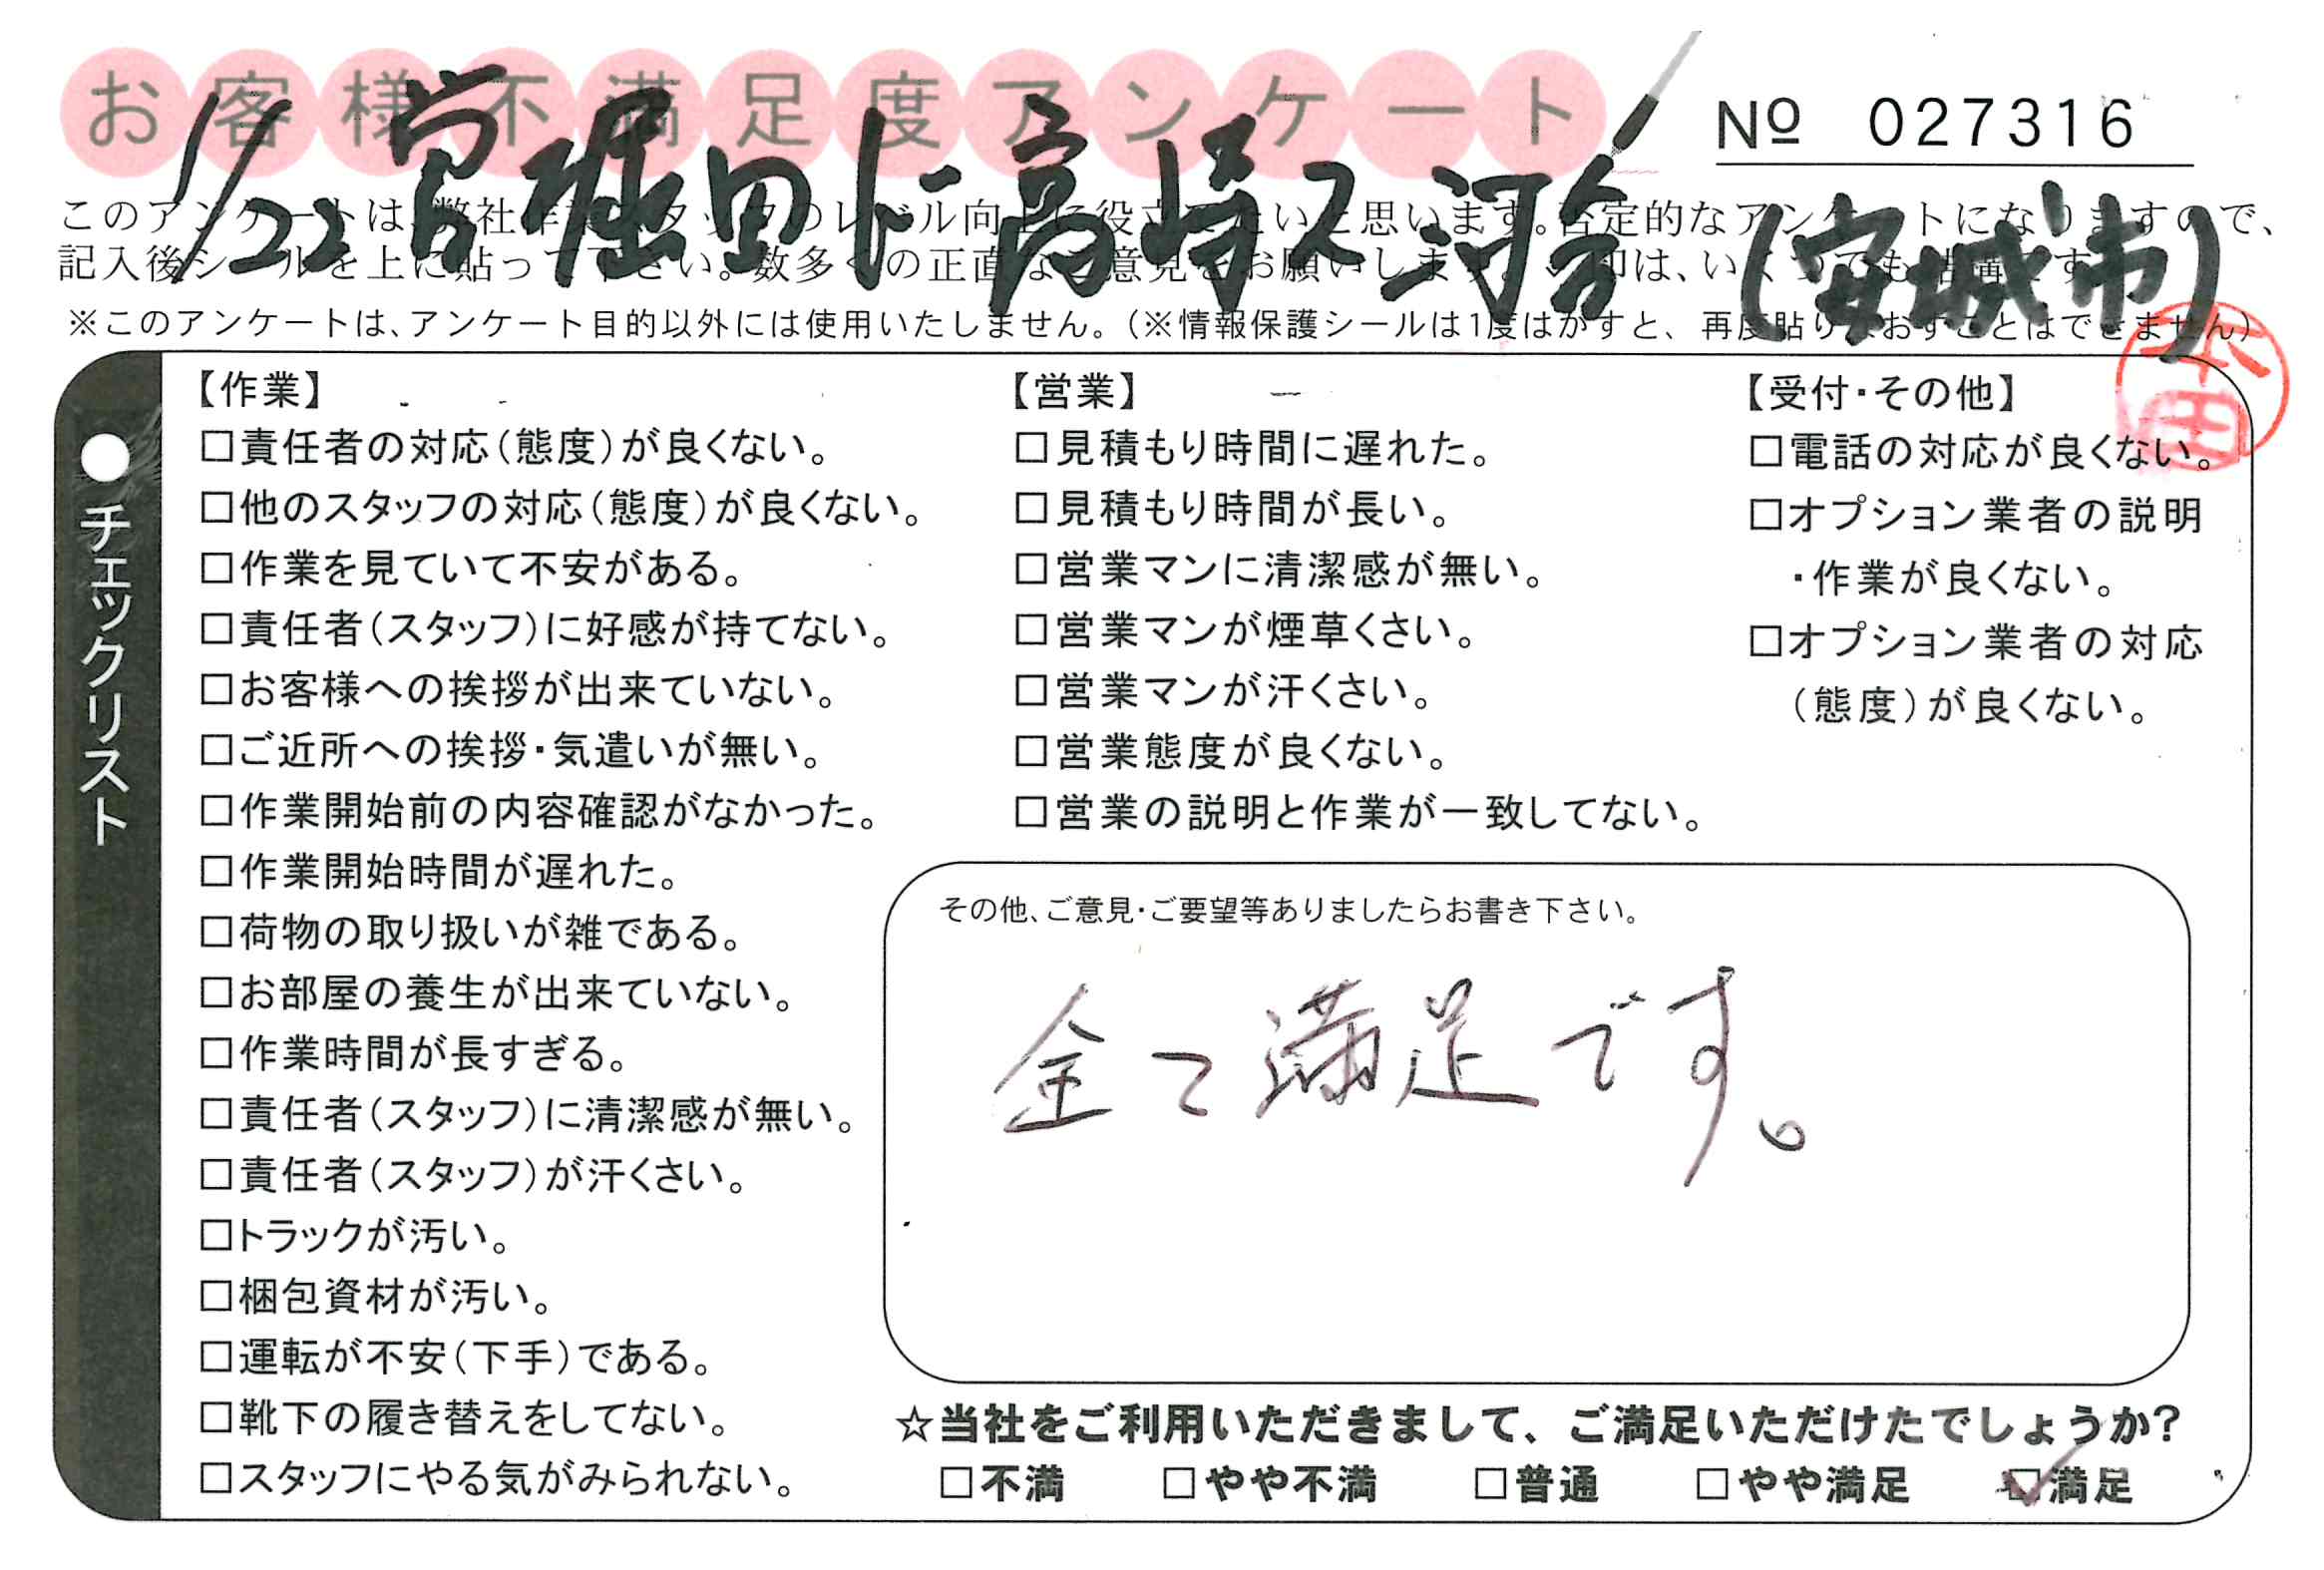 お客様不満足度アンケート
№ 027316
1/22 営堀田ド高崎ス河合 (安城市)
このアンケートは、弊社作業スタッフのレベル向上に役立てたいと思います。否定的なアンケートになりますので、
記入後シールを上に貼って下さい。数多くの正直なご意見をお願いします。 印は、いくつでも結構です
※このアンケートは、アンケート目的以外には使用いたしません。(※情報保護シールは1度はがすと、再度貼りなおすことはできません)
●チェックリスト
【作業】
□責任者の対応(態度)が良くない。
□他のスタッフの対応(態度)が良くない。
□作業を見ていて不安がある。
□責任者(スタッフ)に好感が持てない。
□お客様への挨拶が出来ていない。
□ご近所への挨拶・気遣いが無い。
□作業開始前の内容確認がなかった。
□作業開始時間が遅れた。
□荷物の取り扱いが雑である。
□お部屋の養生が出来ていない。
□作業時間が長すぎる。
□責任者(スタッフ)に清潔感が無い。
□責任者(スタッフ)が汗くさい。
□トラックが汚い。
□梱包資材が汚い。
□運転が不安(下手)である。
□靴下の履き替えをしてない。
□スタッフにやる気がみられない。
【営業】
□見積もり時間に遅れた。
□見積もり時間が長い。
□営業マンに清潔感が無い。
□営業マンが煙草くさい。
□営業マンが汗くさい。
□営業態度が良くない。
□営業の説明と作業が一致してない。
【受付・その他】
□電話の対応が良くない。
□オプション業者の説明
・作業が良くない。
□オプション業者の対応
(態度)が良くない。
本田
その他、ご意見・ご要望等ありましたらお書き下さい。
全て満足です。
☆当社をご利用いただきまして、ご満足いただけたでしょうか?
□不満 □やや不満 □普通 □やや満足 ☑満足